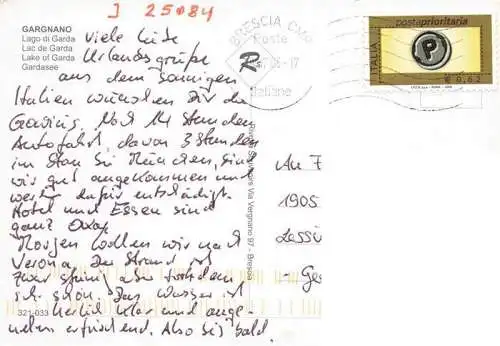 I 25084
GARGNANO
Lago di Garda
Lac de Garda
Lake of Garda
Gardasee
viele liebe
Urlaubsgrüße
aus dem sonnigen
Italien wünschen Dir die
Nach 14 Stunden
Autofahrt, davon 3 Stunden
im Stau bei München, sind
wir gut angekommen und
dafür entschädigt.
Hotel und Essen sind
ganz
Morgen wollen wir nach
Verona. Der Strand ist
zwar steinig aber trotzdem
sehr schön. Das Wasser ist
herrlich klar und ange-
nehm erfrischend. Also bis bald.
321-033
Vergnano 97 - Brescia
BRESCIA CMP
Poste
Italiane
postaprioritaria
ITALIA
P
€ 0,62
An F
1905
Lessi
- Ge